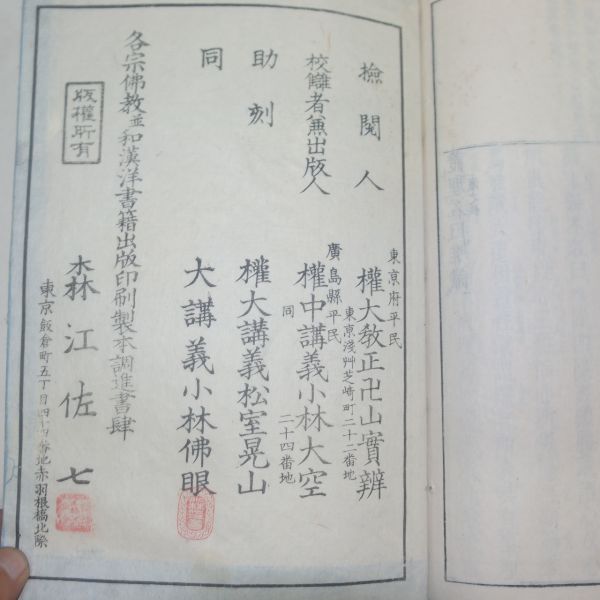 檢閱人
東京府平民
權大教正卍山實辨
東京淺艸芝崎町二十二番地
校讎者兼出版人
廣島縣平民
權中講義小林大空
同
二十四番地
助刻
權大講義松室晃山
同
大講義小林佛眼
各宗佛教並和漢洋書籍出版印刷製本調進書肆
版權所有
森江佐七
東京飯倉町五丁目四十四番地赤羽根橋北際